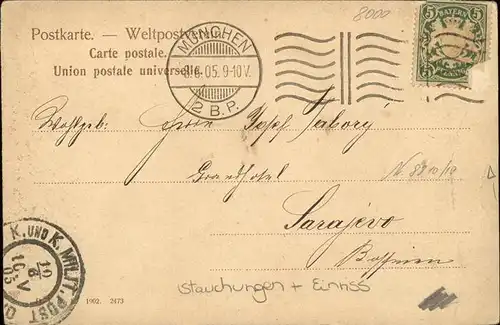 8000
Postkarte. — Weltpostverein
Carte postale.
Union postale universelle
MÜNCHEN
05. 9-10V.
2 B.P.
5 BAYERN 5
5 5
Wohlgeb. Herrn Josef
Grandhotel
Sarajevo
Bosnien
K. UND K. MILIT. POST
10
V
05
1902. 2473
Stauchungen + Einriss